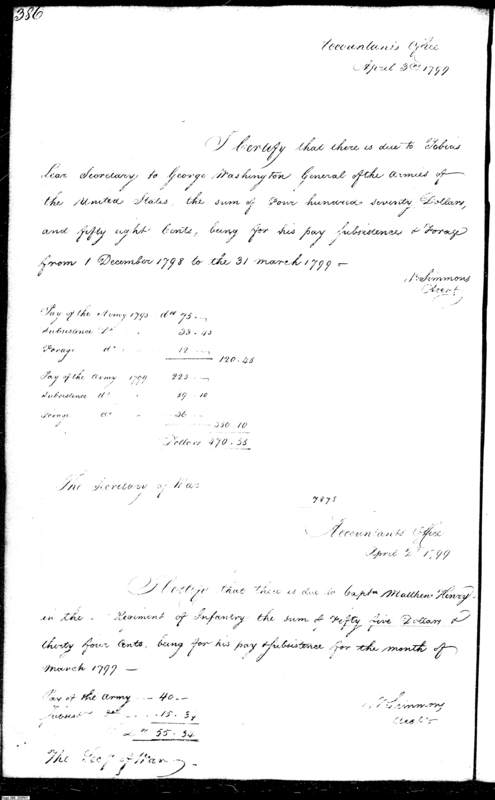 386
Accountants Office
April 3d 1799
I Certify that there is due to Tobias
Lear Secretary to George Washington General of the Armies of
the United States, the sum of Four hundred seventy Dollars,
and fifty eight Cents, being for his pay Subsistence & Forage
from 1 December 1798 to the 31 march 1799 -
Wm Simmons
Acct
Pay of the Army 1798 dr 75 . -
Subsistence do 33 . 48
Forage do 12 . -
120 . 48
Pay of the Army 1799 225 . -
Subsistence do 89 . 10
Forage do 36 . -
350 10
Dollars 470 . 58
The Secretary of War
7875
Accountants Office
April 2d 1799
I Certify that there is due to Captn Matthew Henry
in the Regiment of Infantry the sum of Fifty five Dollars &
thirty four Cents, being for his pay & Subsistence for the month of
March 1799 -
Pay of the Army - 40 . -
Subsist do 15 . 34
55 . 34
Wm Simmons
Acct
The Secy of War